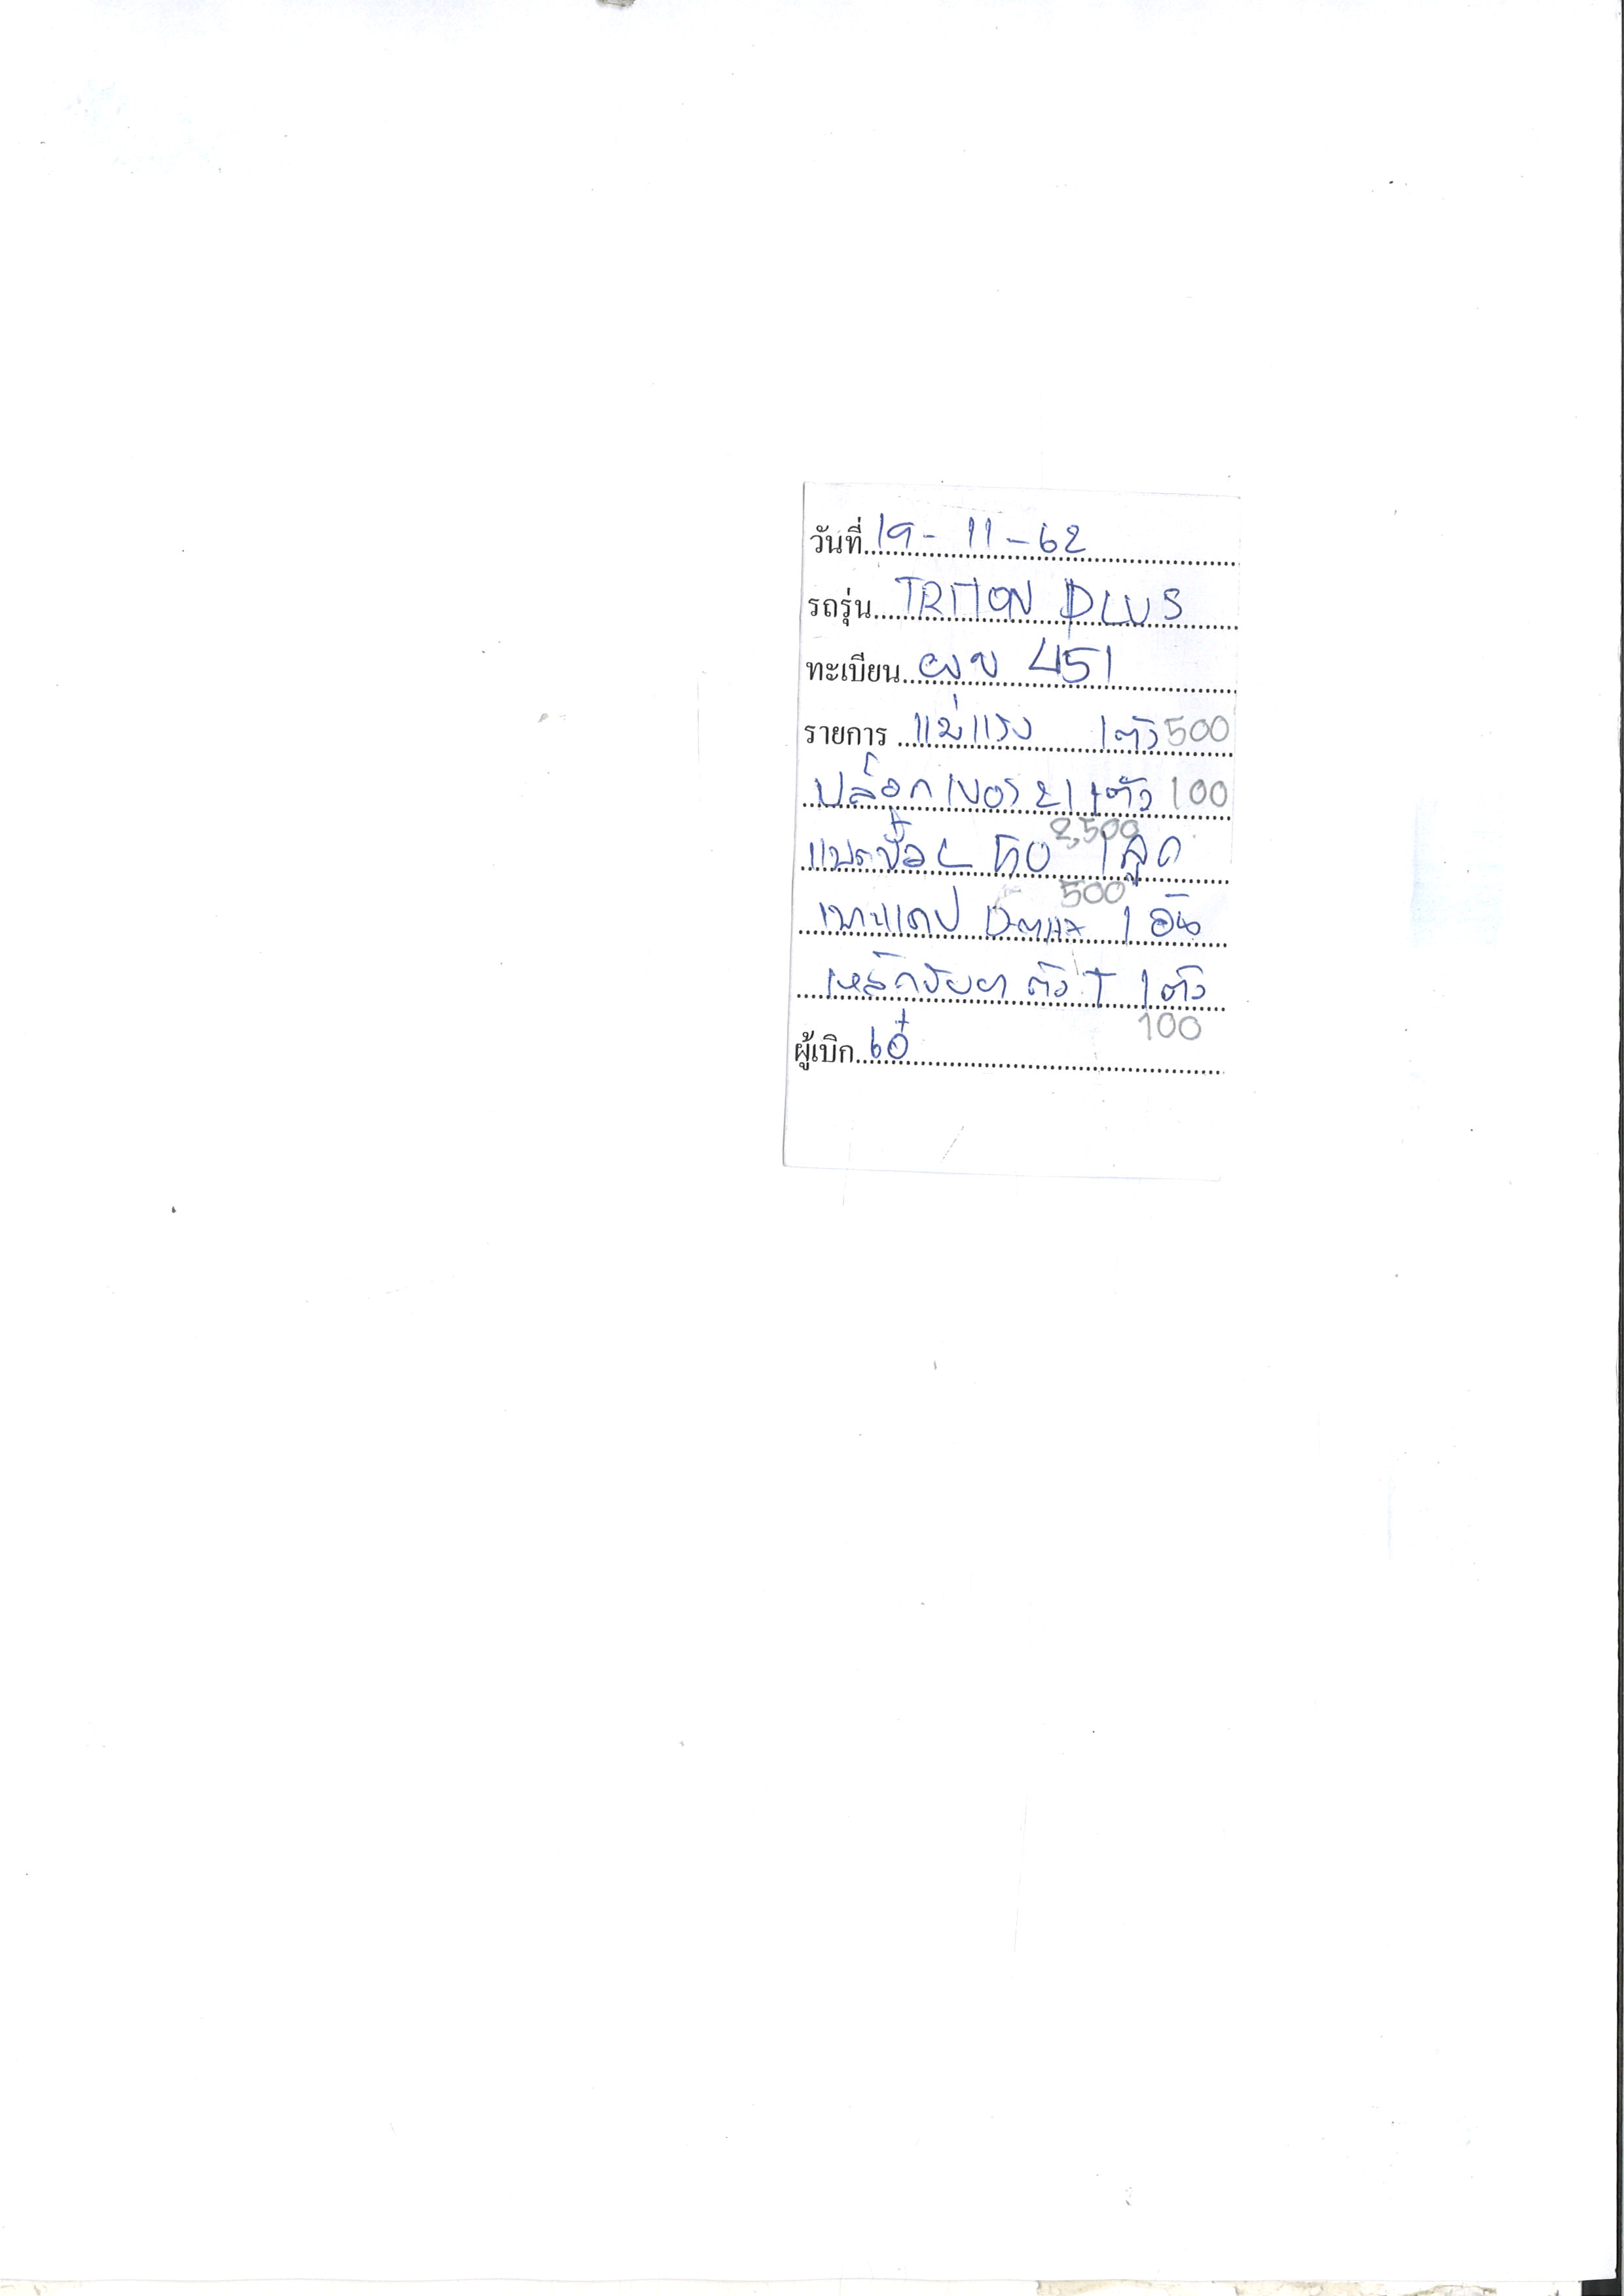 วันที่ 19 - 11 - 62
รถรุ่น TRITON PLUS
ทะเบียน ผข 451
รายการ แม่แรง 1 ตัว 500
บล๊อก เบอร์ 21 1 ตัว 100
2,500
แบตขั้ว L 1 ลูก
500
แคป D-max 1 อัน
เหล็กขันยา ตัว T 1 ตัว
100
ผู้เบิก